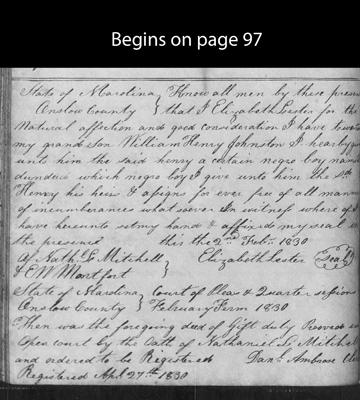 Begins on page 97
State of Carolina } Know all men by these presen
Onslow County } that I Elizabeth Lester for the
Natural affection and good consideration I have towar
my grand Son William Henry Johnston I hearby gi
unto him the said henry a certain negro boy name
dundero which negro boy I give unto him the sd
Henry his heirs & assigns for ever free of all mann
of incumberances what soever In witness where of I
have hereunto set my hand & affixed my seal in
the presence this the 2nd Febr. 1830
of Nath. L Mitchell } Elizabeth Lester Seal
& E W Montfort
State of N Carolina } Court of Pleas & Quarter sessions
Onslow County } February Term 1830
Then was the foregoing deed of Gift duly Prooved in
Open court by the Oath of Nathaniel L Mitchell
and ordered to be Registered Danl. Ambrose Cl
Registered Apl 27th 1830